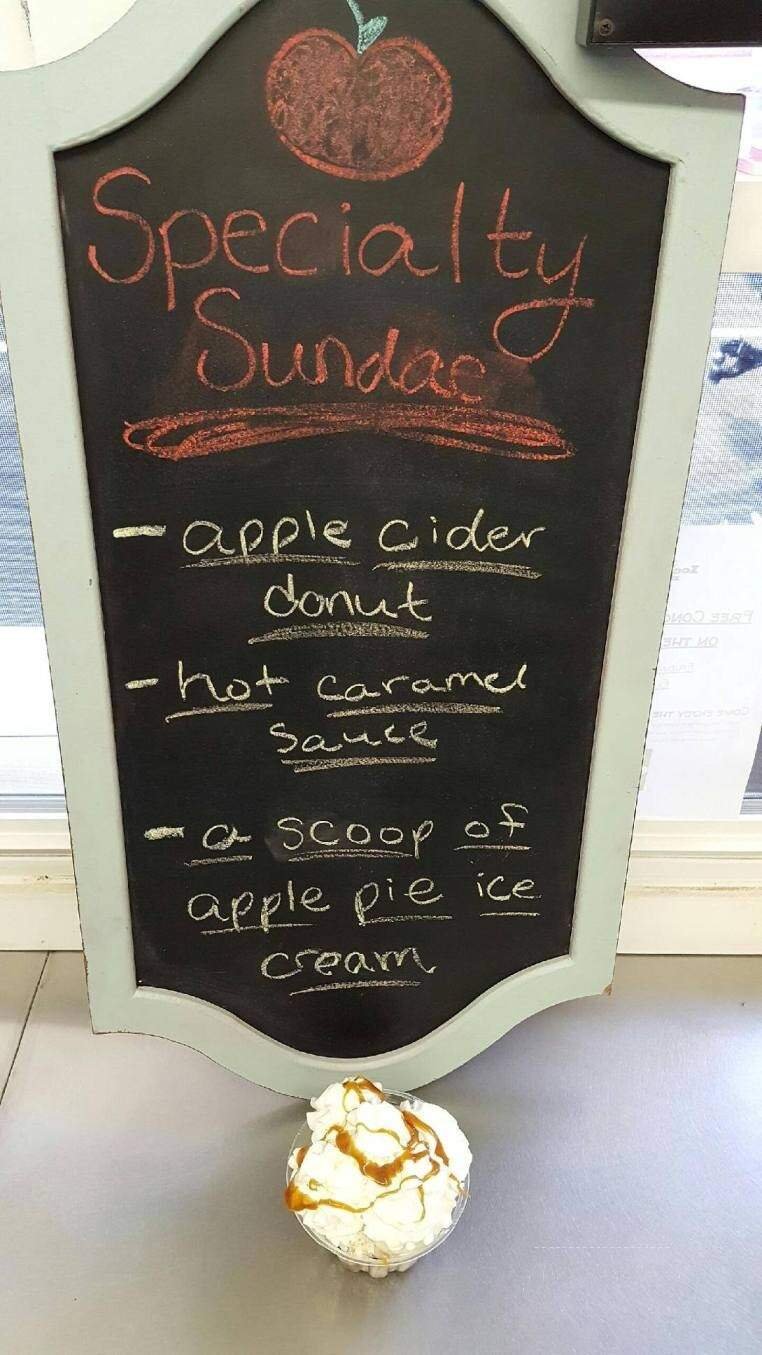 Specialty
Sundae
- apple cider
donut
- hot caramel
sauce
- a scoop of
apple pie ice
cream
FREE CONC
ON THE
COME ENJOY THE